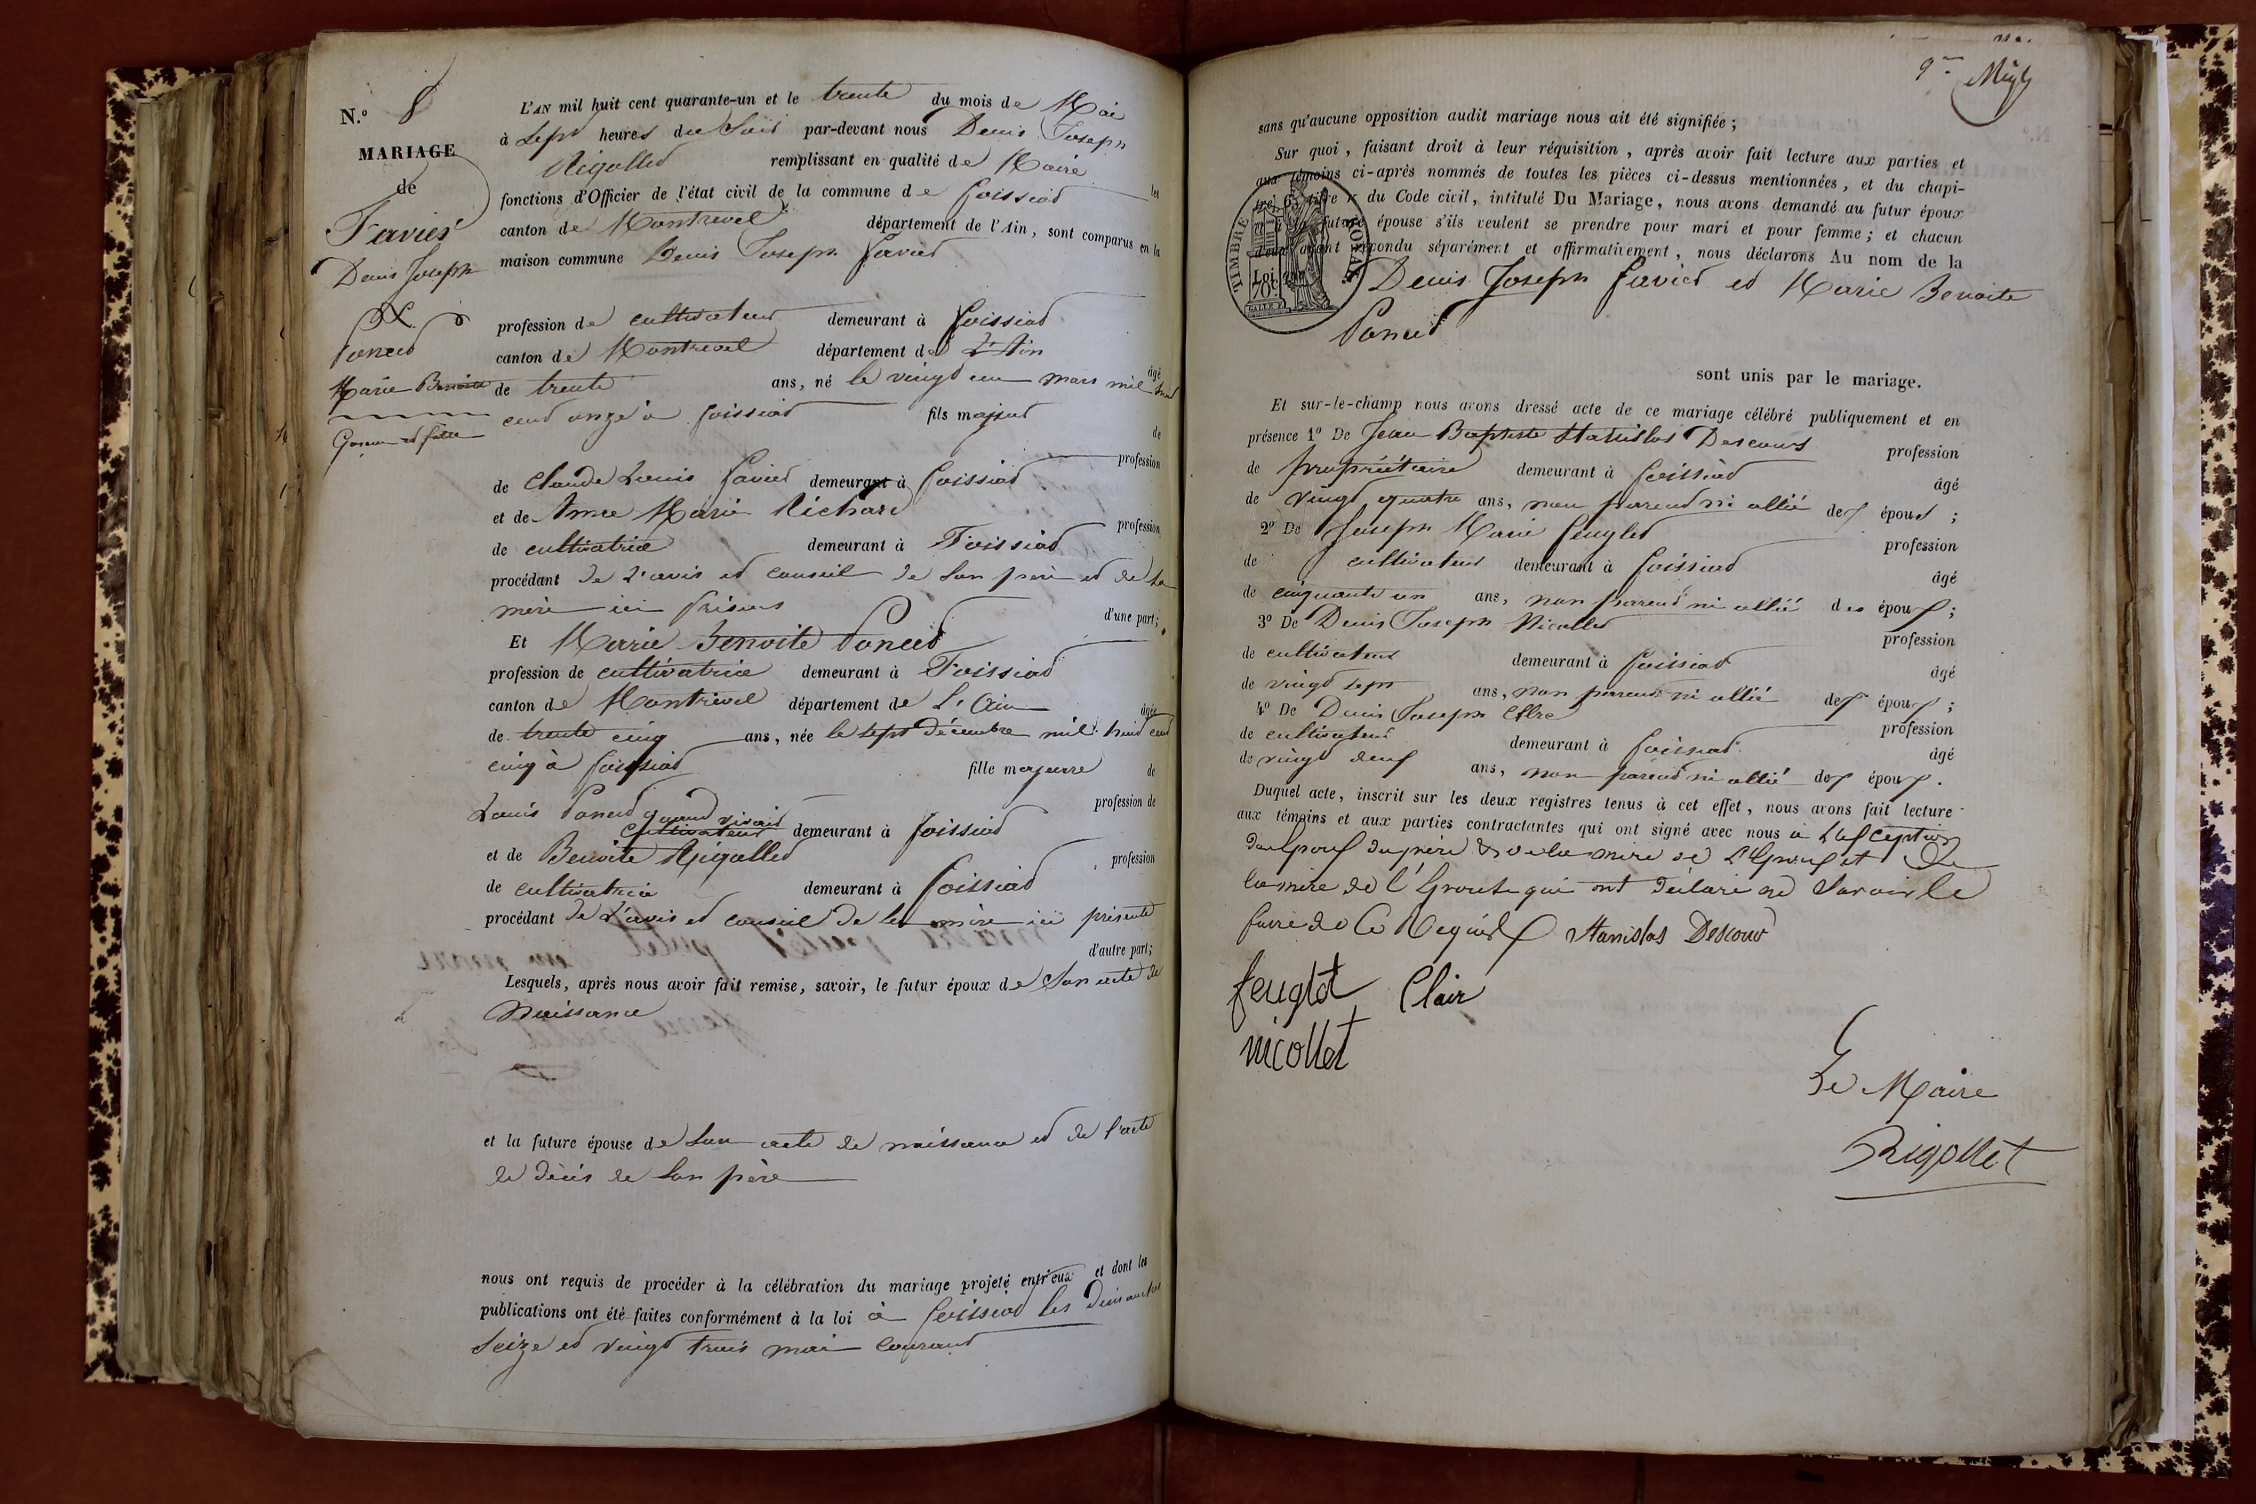 N.º 8
MARIAGE
de
Favier
Denis Joseph
&
Poncet
Marie Benoite
Garçon et fille
L'AN mil huit cent quarante-un et le trente du mois de Mai
à sept heures du soir par-devant nous Denis Joseph
Rigollet remplissant en qualité de Maire les
fonctions d'Officier de l'état civil de la commune de foissiat
canton de Montrevel département de l'Ain, sont comparus en la
maison commune Denis Joseph favier
profession de cultivateur demeurant à foissiat
canton de Montrevel département de L'Ain âgé
de trente ans, né le vingt un mars mil huit
cent onze à foissiat fils majeur de
profession
de Claude Louis favier demeurant à foissiat
et de Anne Marie Richard profession
de cultivatrice demeurant à Foissiat
procédant de L'avis et conseil de son père et de sa
mère ici présens d'une part;
Et Marie Benoite Poncet
profession de cultivatrice demeurant à Foissiat
canton de Montrevel département de L'Ain âgée
de trente cinq ans, née le sept décembre mil huit cent
cinq à foissiat fille majeure de
Louis Poncet quand vivait profession de
cultivateur demeurant à foissiat
et de Benoite Rigollet profession
de cultivatrice demeurant à foissiat
procédant de L'avis et conseil de la mère ici présente
d'autre part;
Lesquels, après nous avoir fait remise, savoir, le futur époux de son acte de
Naissance
et la future épouse de son acte de naissance et de l'acte
de décès de son père
nous ont requis de procéder à la célébration du mariage projeté entr'eux et dont les
publications ont été faites conformément à la loi à foissiat les dimanches
seize et vingt trois mai courant
sans qu'aucune opposition audit mariage nous ait été signifiée;
Sur quoi, faisant droit à leur réquisition, après avoir fait lecture aux parties et
aux témoins ci-après nommés de toutes les pièces ci-dessus mentionnées, et du chapi-
tre 6, titre du Code civil, intitulé Du Mariage, nous avons demandé au futur époux
et à la future épouse s'ils veulent se prendre pour mari et pour femme; et chacun
d'eux ayant répondu séparément et affirmativement, nous déclarons Au nom de la
TIMBRE ROYAL
Denis Joseph favier et Marie Benoite
Poncet
sont unis par le mariage.
Et sur-le-champ nous avons dressé acte de ce mariage célébré publiquement et en
présence 1º De Jean Baptiste Stanislas Descours profession
de propriétaire demeurant à foissiat âgé
de vingt quatre ans, non parent ni allié des époux;
2º De Joseph Marie feuglet profession
de cultivateur demeurant à foissiat âgé
de cinquante un ans, non parent ni allié des époux;
3º De Denis Joseph Nicollet profession
de cultivateur demeurant à foissiat âgé
de vingt sept ans, non parent ni allié des époux;
4º De Denis Joseph profession
de cultivateur demeurant à foissiat âgé
de vingt neuf ans, non parent ni allié des époux.
Duquel acte, inscrit sur les deux registres tenus à cet effet, nous avons fait lecture
aux témoins et aux parties contractantes qui ont signé avec nous à L'exception
des Epoux du père & de la mère de L'Epoux et de
la mère de l'Epouse qui ont déclaré ne savoir le
faire de ce Requis Stanislas Descour
feuglet Clair
nicollet
Le Maire
Rigollet